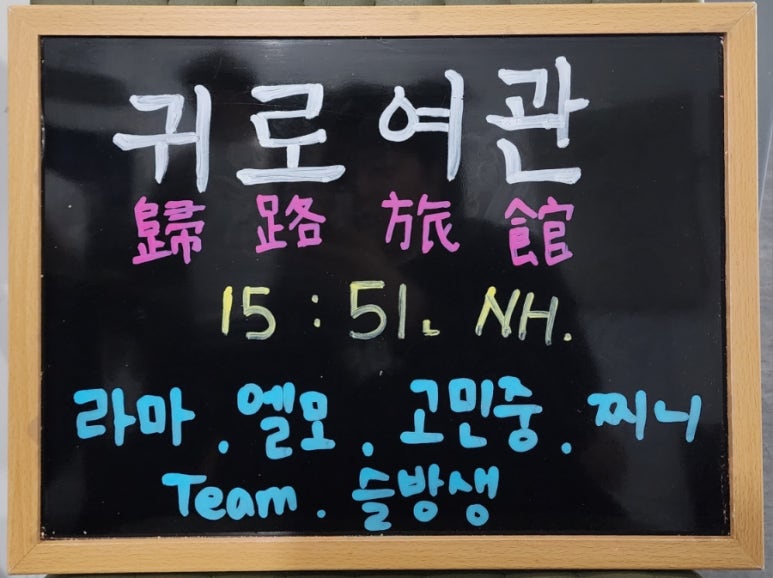 귀로여관
歸路旅館
15:51. NH.
라마.엘모.고민중.찌니
Team.슬방생